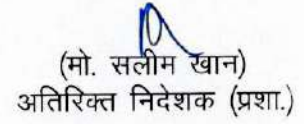 (मो. सलीम खान)
अतिरिक्त निदेशक (प्रशा.)